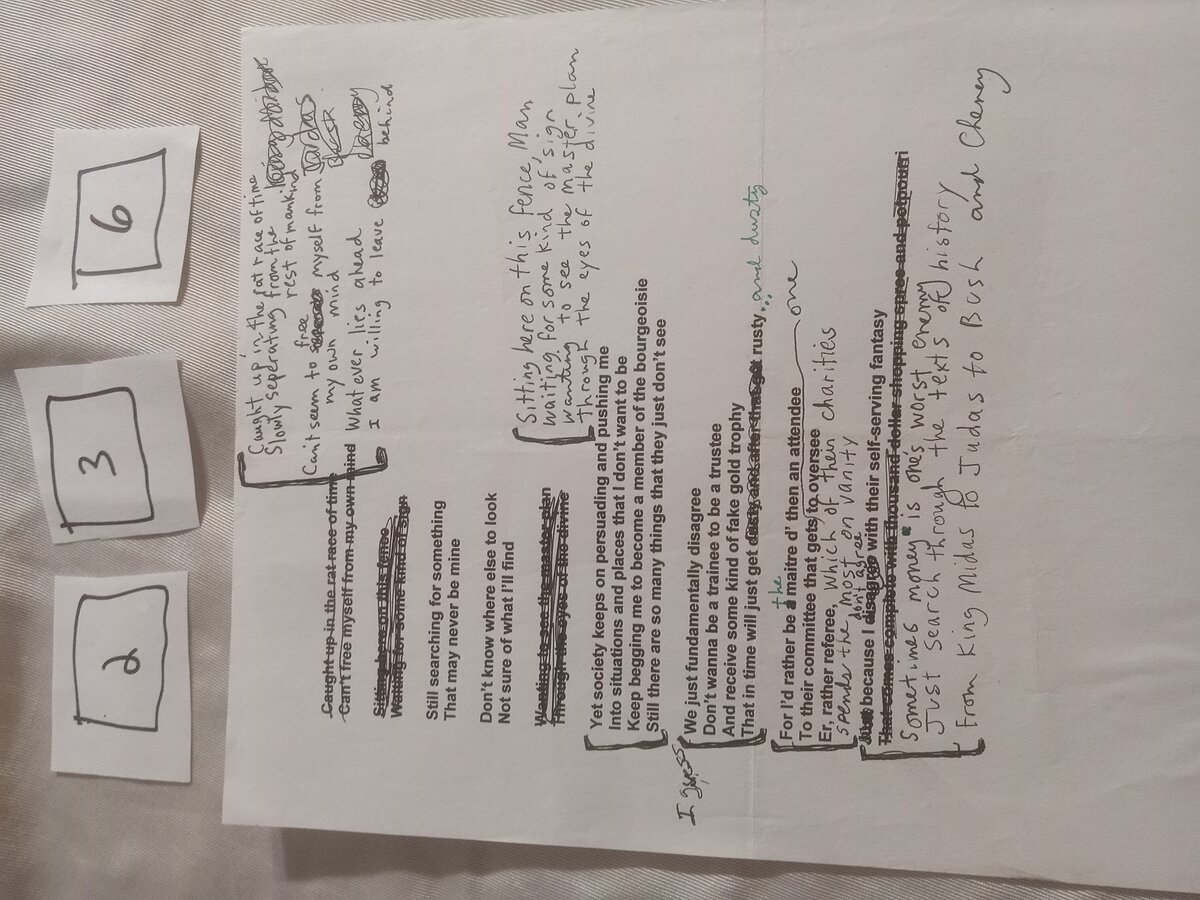 2
3
6
Caught up in the rat race of time
Slowly seperating from the
rest of mankind
Can't seem to free myself from
my own mind
What ever lies ahead
I am willing to leave behind
Caught up in the rat race of time
Can't free myself from my own mind
Sitting here on this fence
Waiting for some kind of sign
Still searching for something
That may never be mine
Don't know where else to look
Not sure of what I'll find
Wanting to see the master plan
Through the eyes of the divine
Sitting here on this fence, Man
waiting for some kind of sign
wanting to see the master plan
through the eyes of the divine
Yet society keeps on persuading and pushing me
Into situations and places that I don't want to be
Keep begging me to become a member of the bourgeoisie
Still there are so many things that they just don't see
I guess
We just fundamentally disagree
Don't wanna be a trainee to be a trustee
And receive some kind of fake gold trophy
That in time will just get dusty and after that get rusty... and dusty
the
For I'd rather be a maitre d' then an attendee
one
To their committee that gets to oversee
Er, rather referee, which of their charities
spends the most on vanity
don't agree
Just because I disagree with their self-serving fantasy
That comes complete with thousand dollar shopping spree and potpourri
Sometimes money is one's worst enemy
Just search through the texts of history
From King Midas to Judas to Bush and Cheney